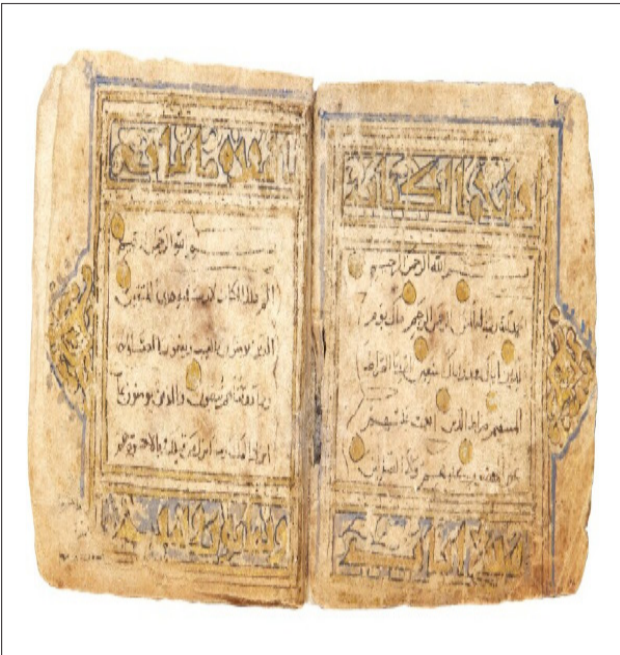 فاتحة الكتاب
بسم الله الرحمن الرحيم
الحمد لله رب العلمين الرحمن الرحيم ملك يوم
الدين اياك نعبد واياك نستعين اهدنا الصراط
المستقيم صراط الذين انعمت عليهم
غير المغضوب عليهم ولا الضالين
بسم الله الرحمن الرحيم
الم ذلك الكتاب لا ريب فيه هدى للمتقين
الذين يومنون بالغيب ويقيمون الصلوة
ومما رزقنهم ينفقون والذين يومنون بما
انزل اليك وما انزل من قبلك وبالاخرة هم